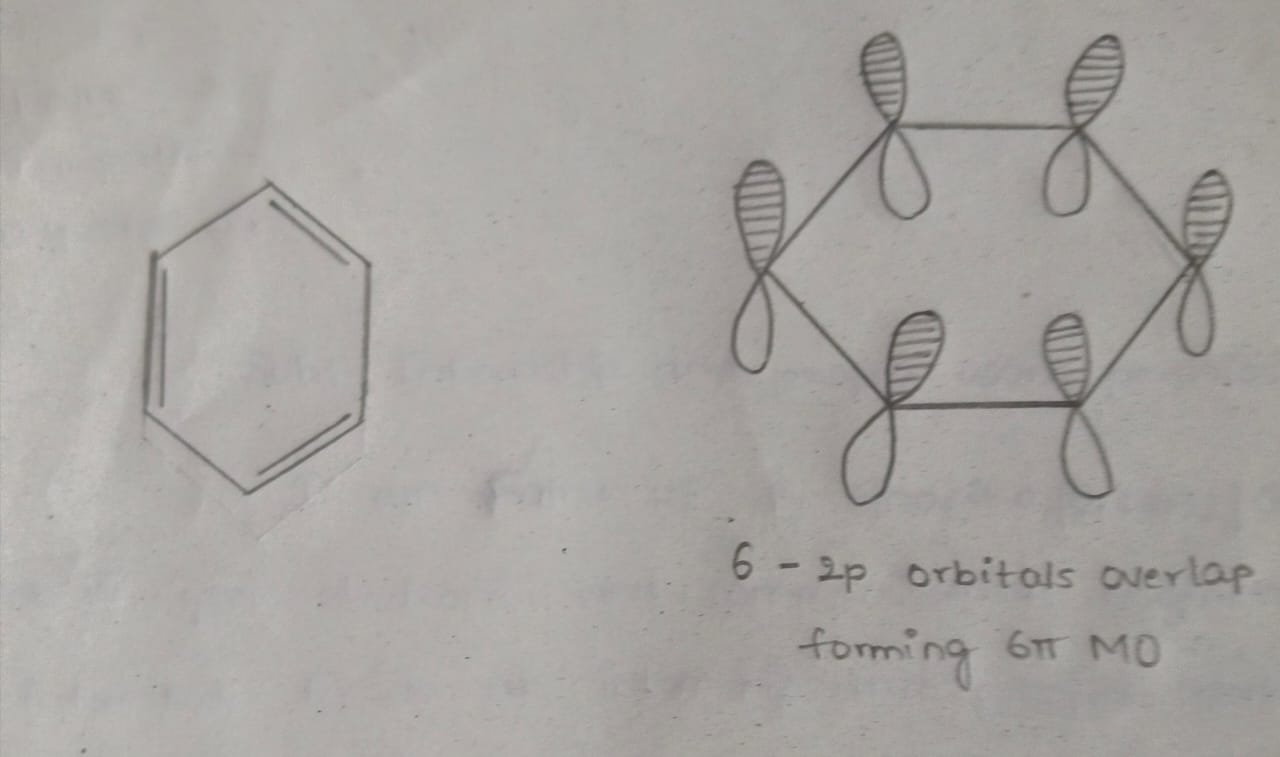 6 - 2p orbitals overlap
forming 6π MO